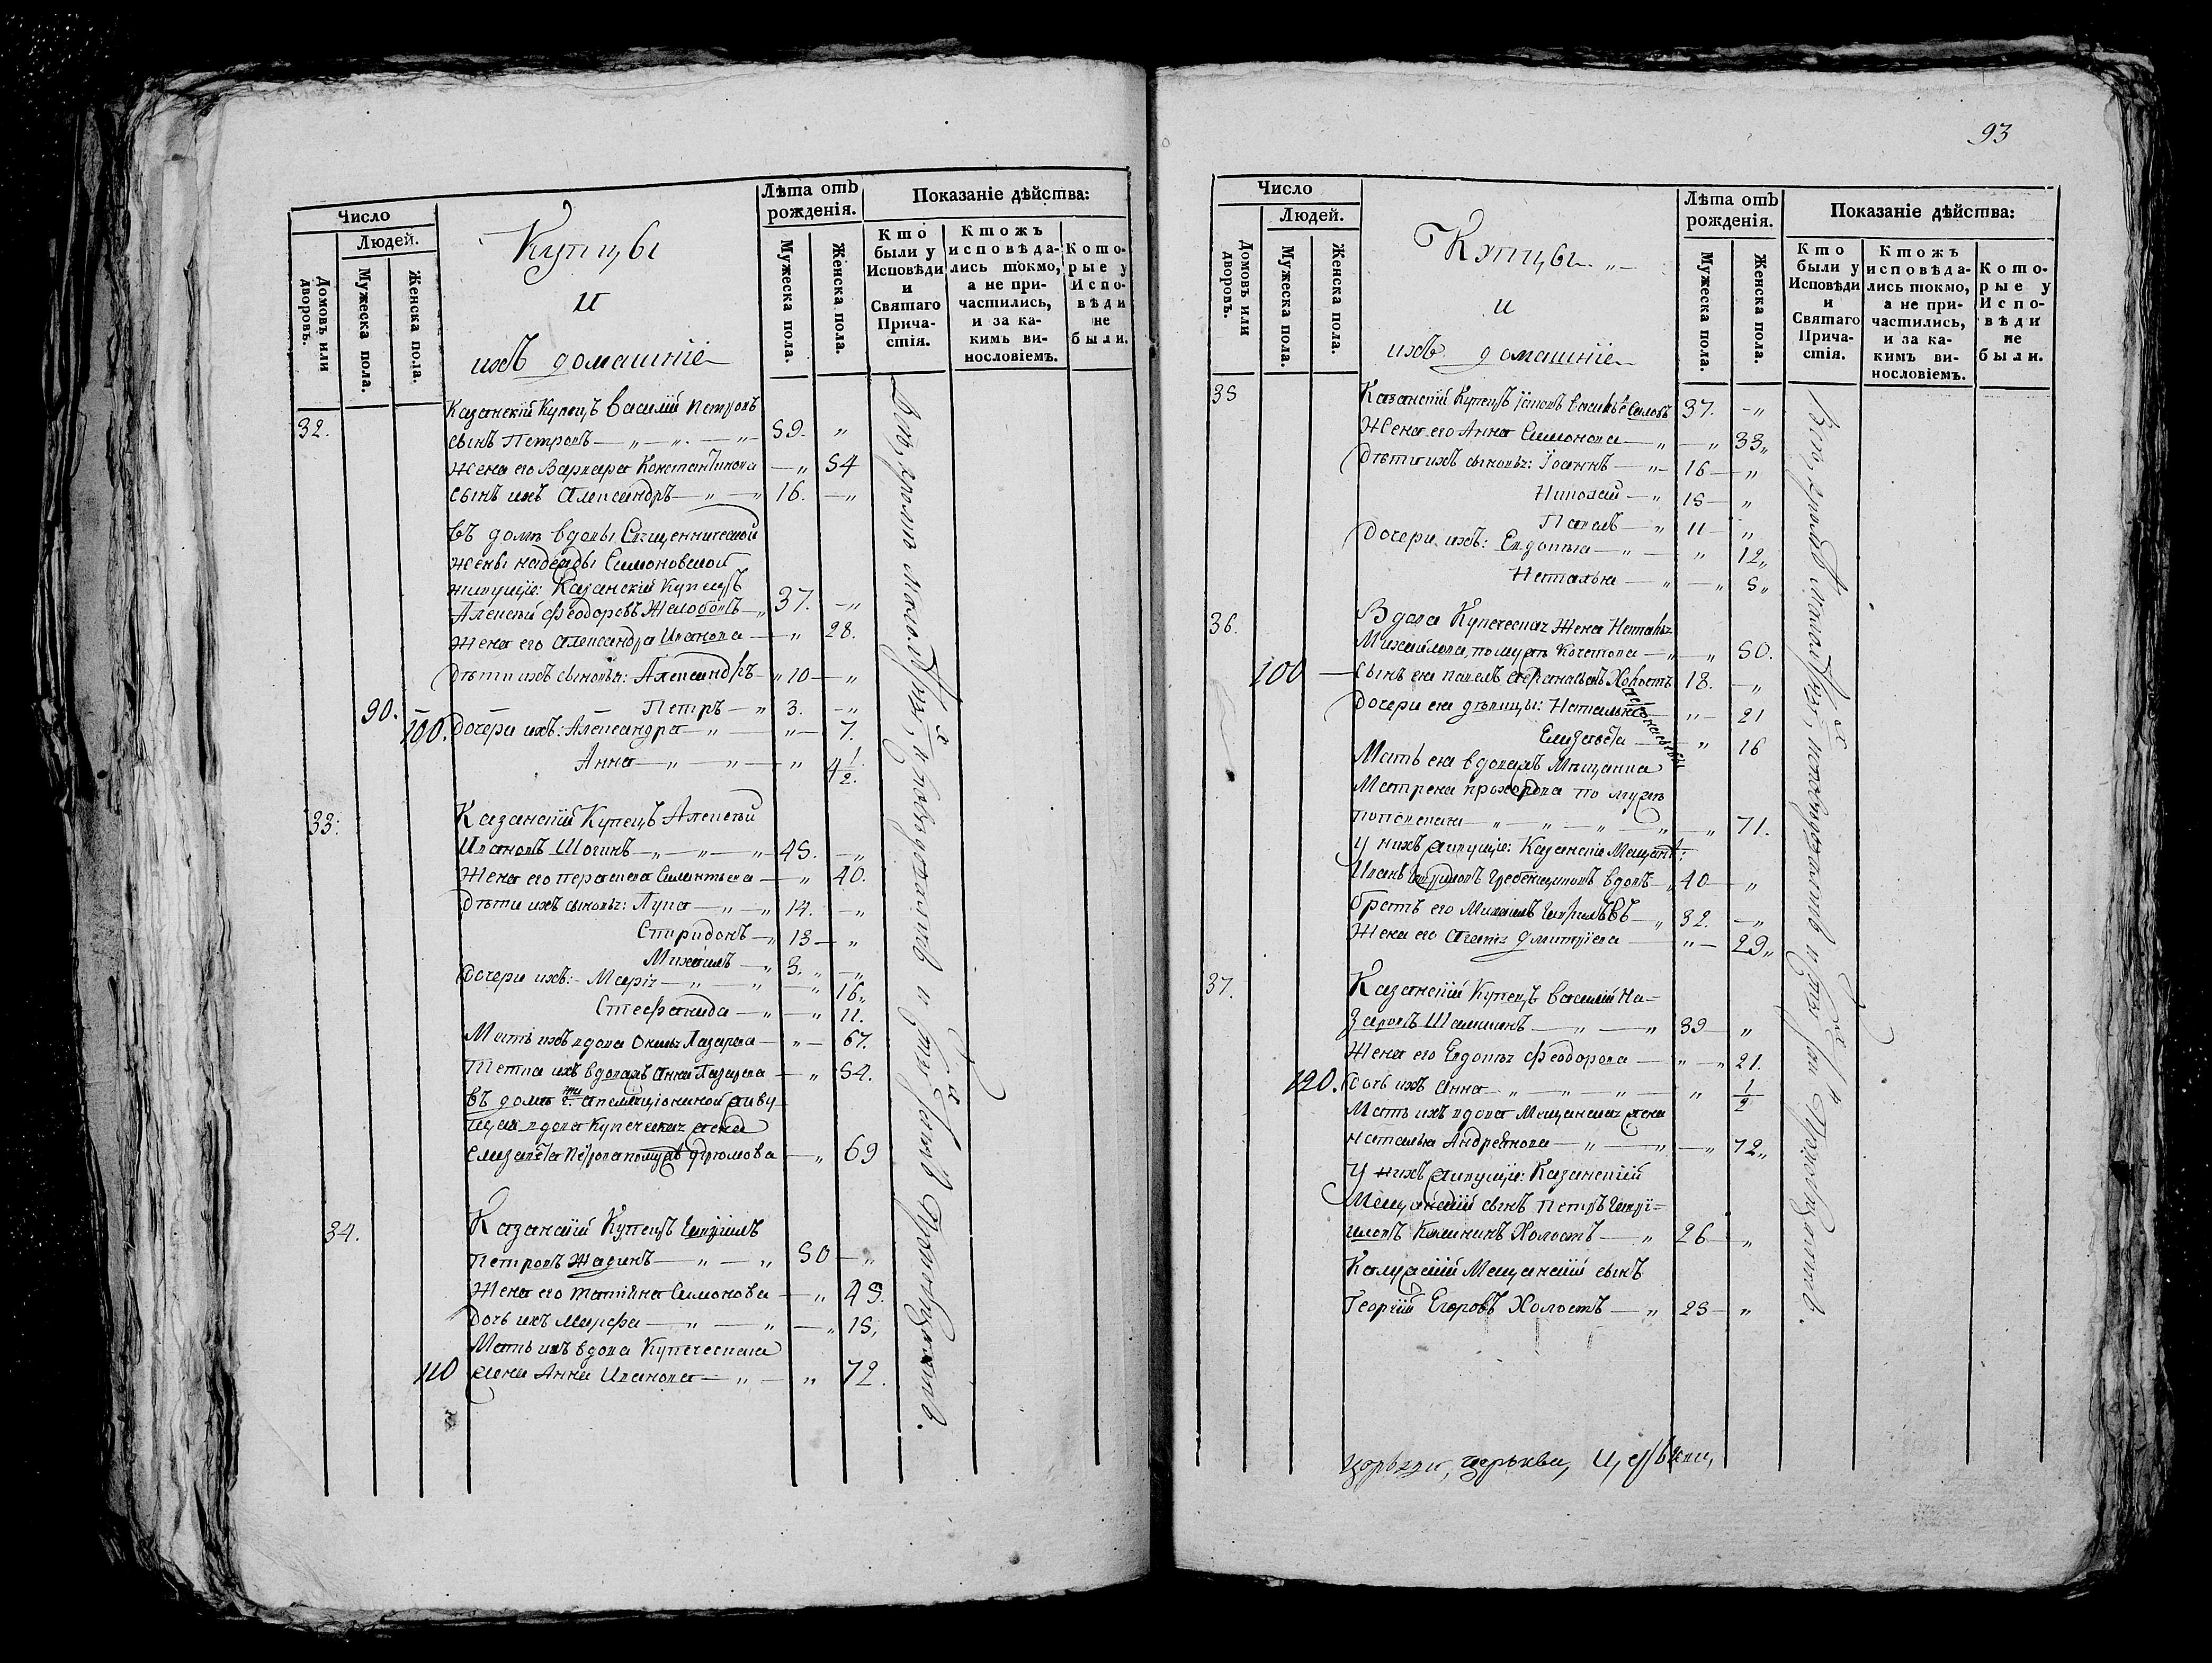 Число
Людей.
Домовъ или дворовъ.
Мужеска пола.
Женска пола.
Купцы
и
ихъ домашніе
Лѣта отъ рожденія.
Мужеска пола.
Женска пола.
Показаніе дѣйства:
Кто были у Исповѣди и Святаго Причастія.
Ктожъ исповѣдались токмо, а не причастились, и за какимъ винословіемъ.
Которые у Исповѣди не были.
32.
Казанскій Купецъ Василій Петровъ
сынъ Петровъ — „ — „ — „ 59. „
Жена его Варвара Константинова — „ 54
Сынъ ихъ Александръ — „ — „ 16. — „
Въ домѣ вдовы Священнической
жены Надежды Симоновской
живущіе: Казанскій Купецъ
Алексѣй Феодоровъ Жолобовъ — „ 37. — „
Жена его Александра Иванова — „ 28.
Дѣти ихъ сыновья: Александръ — „ 10 — „
90. — Петръ — „ 3. — „
100. Дочери ихъ: Александра — „ — „ — 7.
Анна — „ — „ — „ 4 1/2.
33.
Казанскій Купецъ Алексѣй
Ивановъ Шогинъ — „ — „ — „ 45. — „
Жена его Парасковья — „ 40.
Дѣти ихъ сыновья: Лука — „ — „ 14. — „
Спиридонъ — „ 13 — „
Михаилъ — „ 3. „ — „
Дочери ихъ: Марія — „ — „ — „ 16„
Стефанида — „ — „ 11.
Мать ихъ вдова Лазарева — „ — 67.
Тетка ихъ вдова Анна Лазарева — „ 54.
Въ домѣ живу-
щая вдова Купеческая жена
Елизавета Петрова по мужѣ — „ 69
34.
Казанскій Купецъ Гавріилъ
Петровъ Жадинъ — „ — „ 50 — „
Жена его Татіяна Симонова — „ 45.
Дочь ихъ Марфа — „ — „ — „ 15.
Мать ихъ вдова Купеческая
110 жена Анна Иванова — „ — „ 72.
93
Число
Людей.
Домовъ или дворовъ.
Мужеска пола.
Женска пола.
Купцы „ —
и
ихъ домашніе
Лѣта отъ рожденія.
Мужеска пола.
Женска пола.
Показаніе дѣйства:
Кто были у Исповѣди и Святаго Причастія.
Ктожъ исповѣдались токмо, а не причастились, и за какимъ винословіемъ.
Которые у Исповѣди не были.
35
Казанскій Купецъ 37. — „
Жена его Анна Симонова — „ — „ 33„
Дѣти ихъ сыновья: Іоаннъ — „ — 16 — „
Николай — „ 15 — „
Павелъ — „ 11 — „
Дочери ихъ: Евдокія — „ — „ 12„
Наталья — „ — „ 5„
36.
Вдова Купеческая Жена Наталья
Михайлова, по мужѣ Кочетова — „ — „ 50.
100 — Сынъ ея Павелъ Холостъ 18. — „
Дочери ея дѣвицы: Наталья „ — 21
Елизавета — „ 16
Мать ея вдова Мѣщанка
Матрена Прохорова по мужѣ
— „ — „ — „ — „ — „ 71.
У нихъ живущіе: Казанскіе Мещане:
Иванъ Гавриловъ Гребенщиковъ вдовъ — „ 40 — „
Братъ его Михаилъ Гавриловъ — „ 32. — „
Жена его Агафія Дмитріева — „ — 29„
37.
Казанскій Купецъ Василій На-
заровъ Шамшинъ — „ — „ 39 — „
Жена его Евдокія Феодорова — „ — „ 21.
120. Дочь ихъ Анна — „ — „ — „ — „ 1/2
Мать ихъ вдова Мещанская жена
Наталья Андреянова — „ — „ — „ 72„
У нихъ живущіе: Казанскій
Мещанскій сынъ Петръ Гаврі-
иловъ Калининъ Холостъ — „ 26 — „
Калужскій Мещанскій сынъ
Георгій Егоровъ Холостъ — „ 25 — „
церькви,